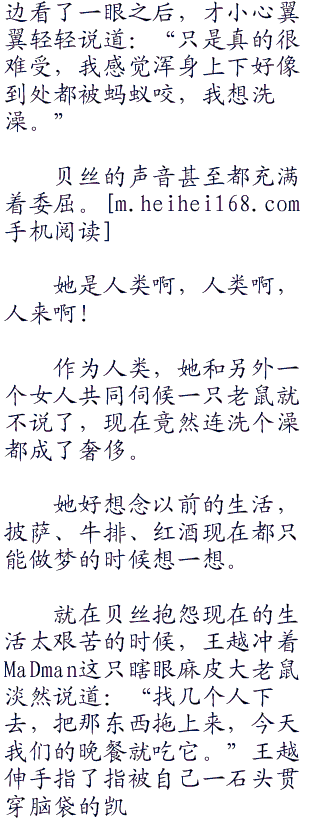 边看了一眼之后，才小心翼
翼轻轻说道：“只是真的很
难受，我感觉浑身上下好像
到处都被蚂蚁咬，我想洗
澡。”
贝丝的声音甚至都充满
着委屈。[m.heihei168.com
手机阅读]
她是人类啊，人类啊，
人来啊！
作为人类，她和另外一
个女人共同伺候一只老鼠就
不说了，现在竟然连洗个澡
都成了奢侈。
她好想念以前的生活，
披萨、牛排、红酒现在都只
能做梦的时候想一想。
就在贝丝抱怨现在的生
活太艰苦的时候，王越冲着
MaDman这只瞎眼麻皮大老鼠
淡然说道：“找几个人下
去，把那东西拖上来，今天
我们的晚餐就吃它。”王越
伸手指了指被自己一石头贯
穿脑袋的凯